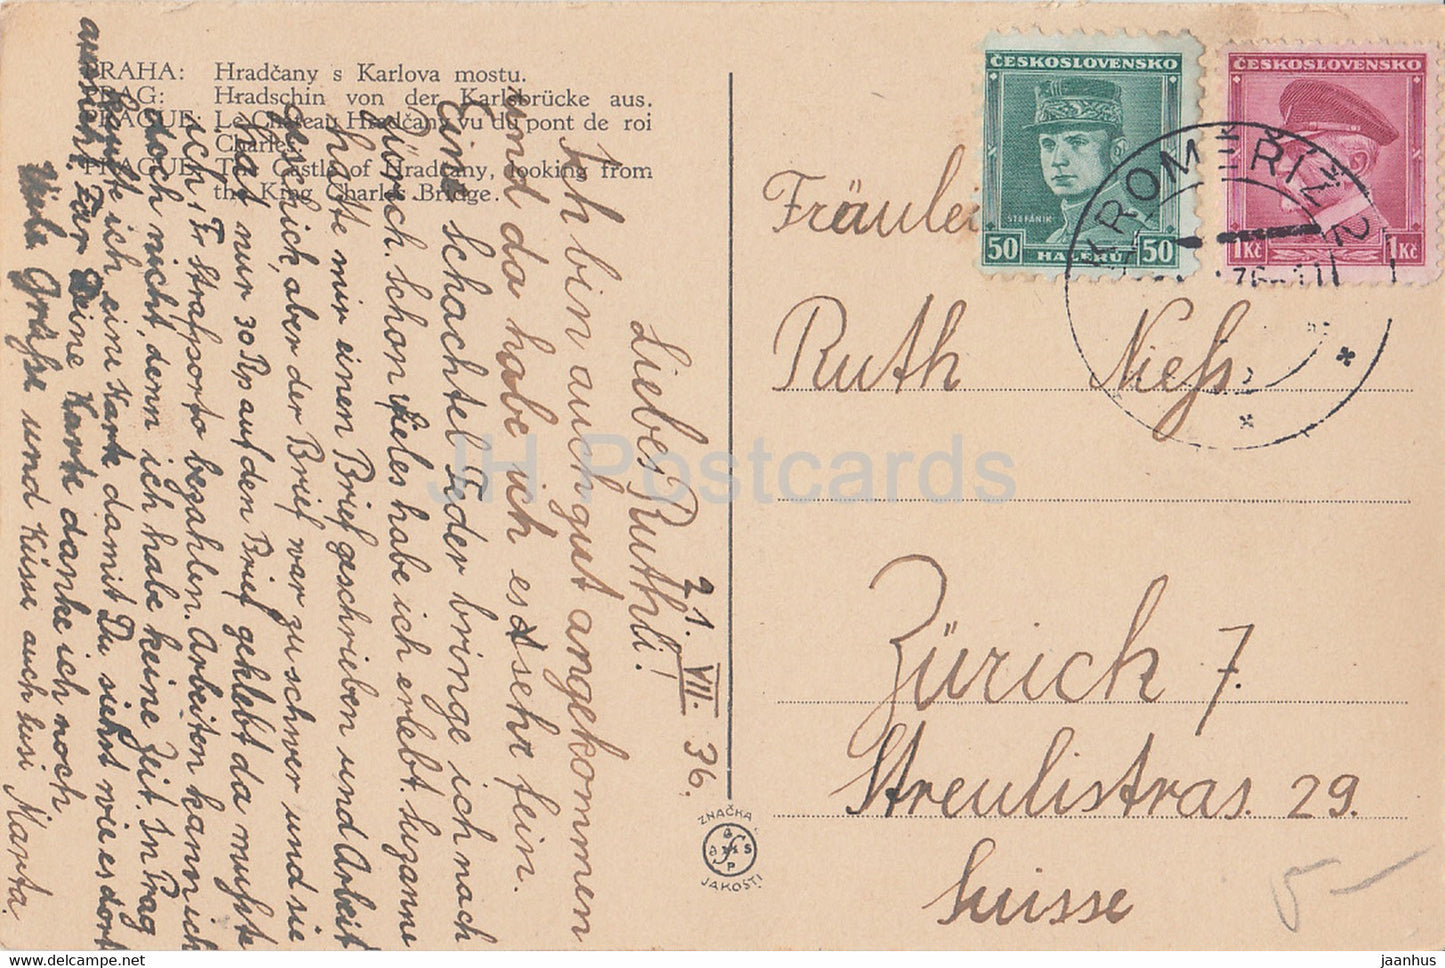 PRAHA: Hradčany s Karlova mostu.
PRAG: Hradschin von der Karlsbrücke aus.
PRAGUE: Le Château Hradčany vu du pont de roi
Charles.
PRAGUE: The Castle of Hradčany, looking from
the King Charles Bridge.
21. VII. 36.
Liebes Ruthli!
Ich bin auch gut angekommen
und da habe ich es sehr fein.
Eine Schachtel Feder bringe ich nach
Zürich. Schon vieles habe ich erlebt. Suzanne
hatte mir einen Brief geschrieben und Arbeit
geschickt, aber der Brief war zu schwer und sie
hat nur 30 Rp auf den Brief geklebt da mußte
ich 1 Fr Strafporto bezahlen. Arbeiten kann ich
doch nicht, denn ich habe keine Zeit. In Prag
kaufte ich eine Karte damit Du siehst wie es dort
aussieht. Für Deine Karte danke ich noch.
Viele Grüße und Küsse auch Susi Marta.
ČESKOSLOVENSKO
ŠTEFÁNIK
50 HALÉŘŮ 50
ČESKOSLOVENSKO
1Kč 1Kč
KROMĚŘÍŽ 2
Fräulein
Ruth Niefs
Zürich 7.
Streulistras. 29.
Suisse
ZNAČKA
G
A S
P
JAKOSTI
5-
JH Postcards
jaanhus